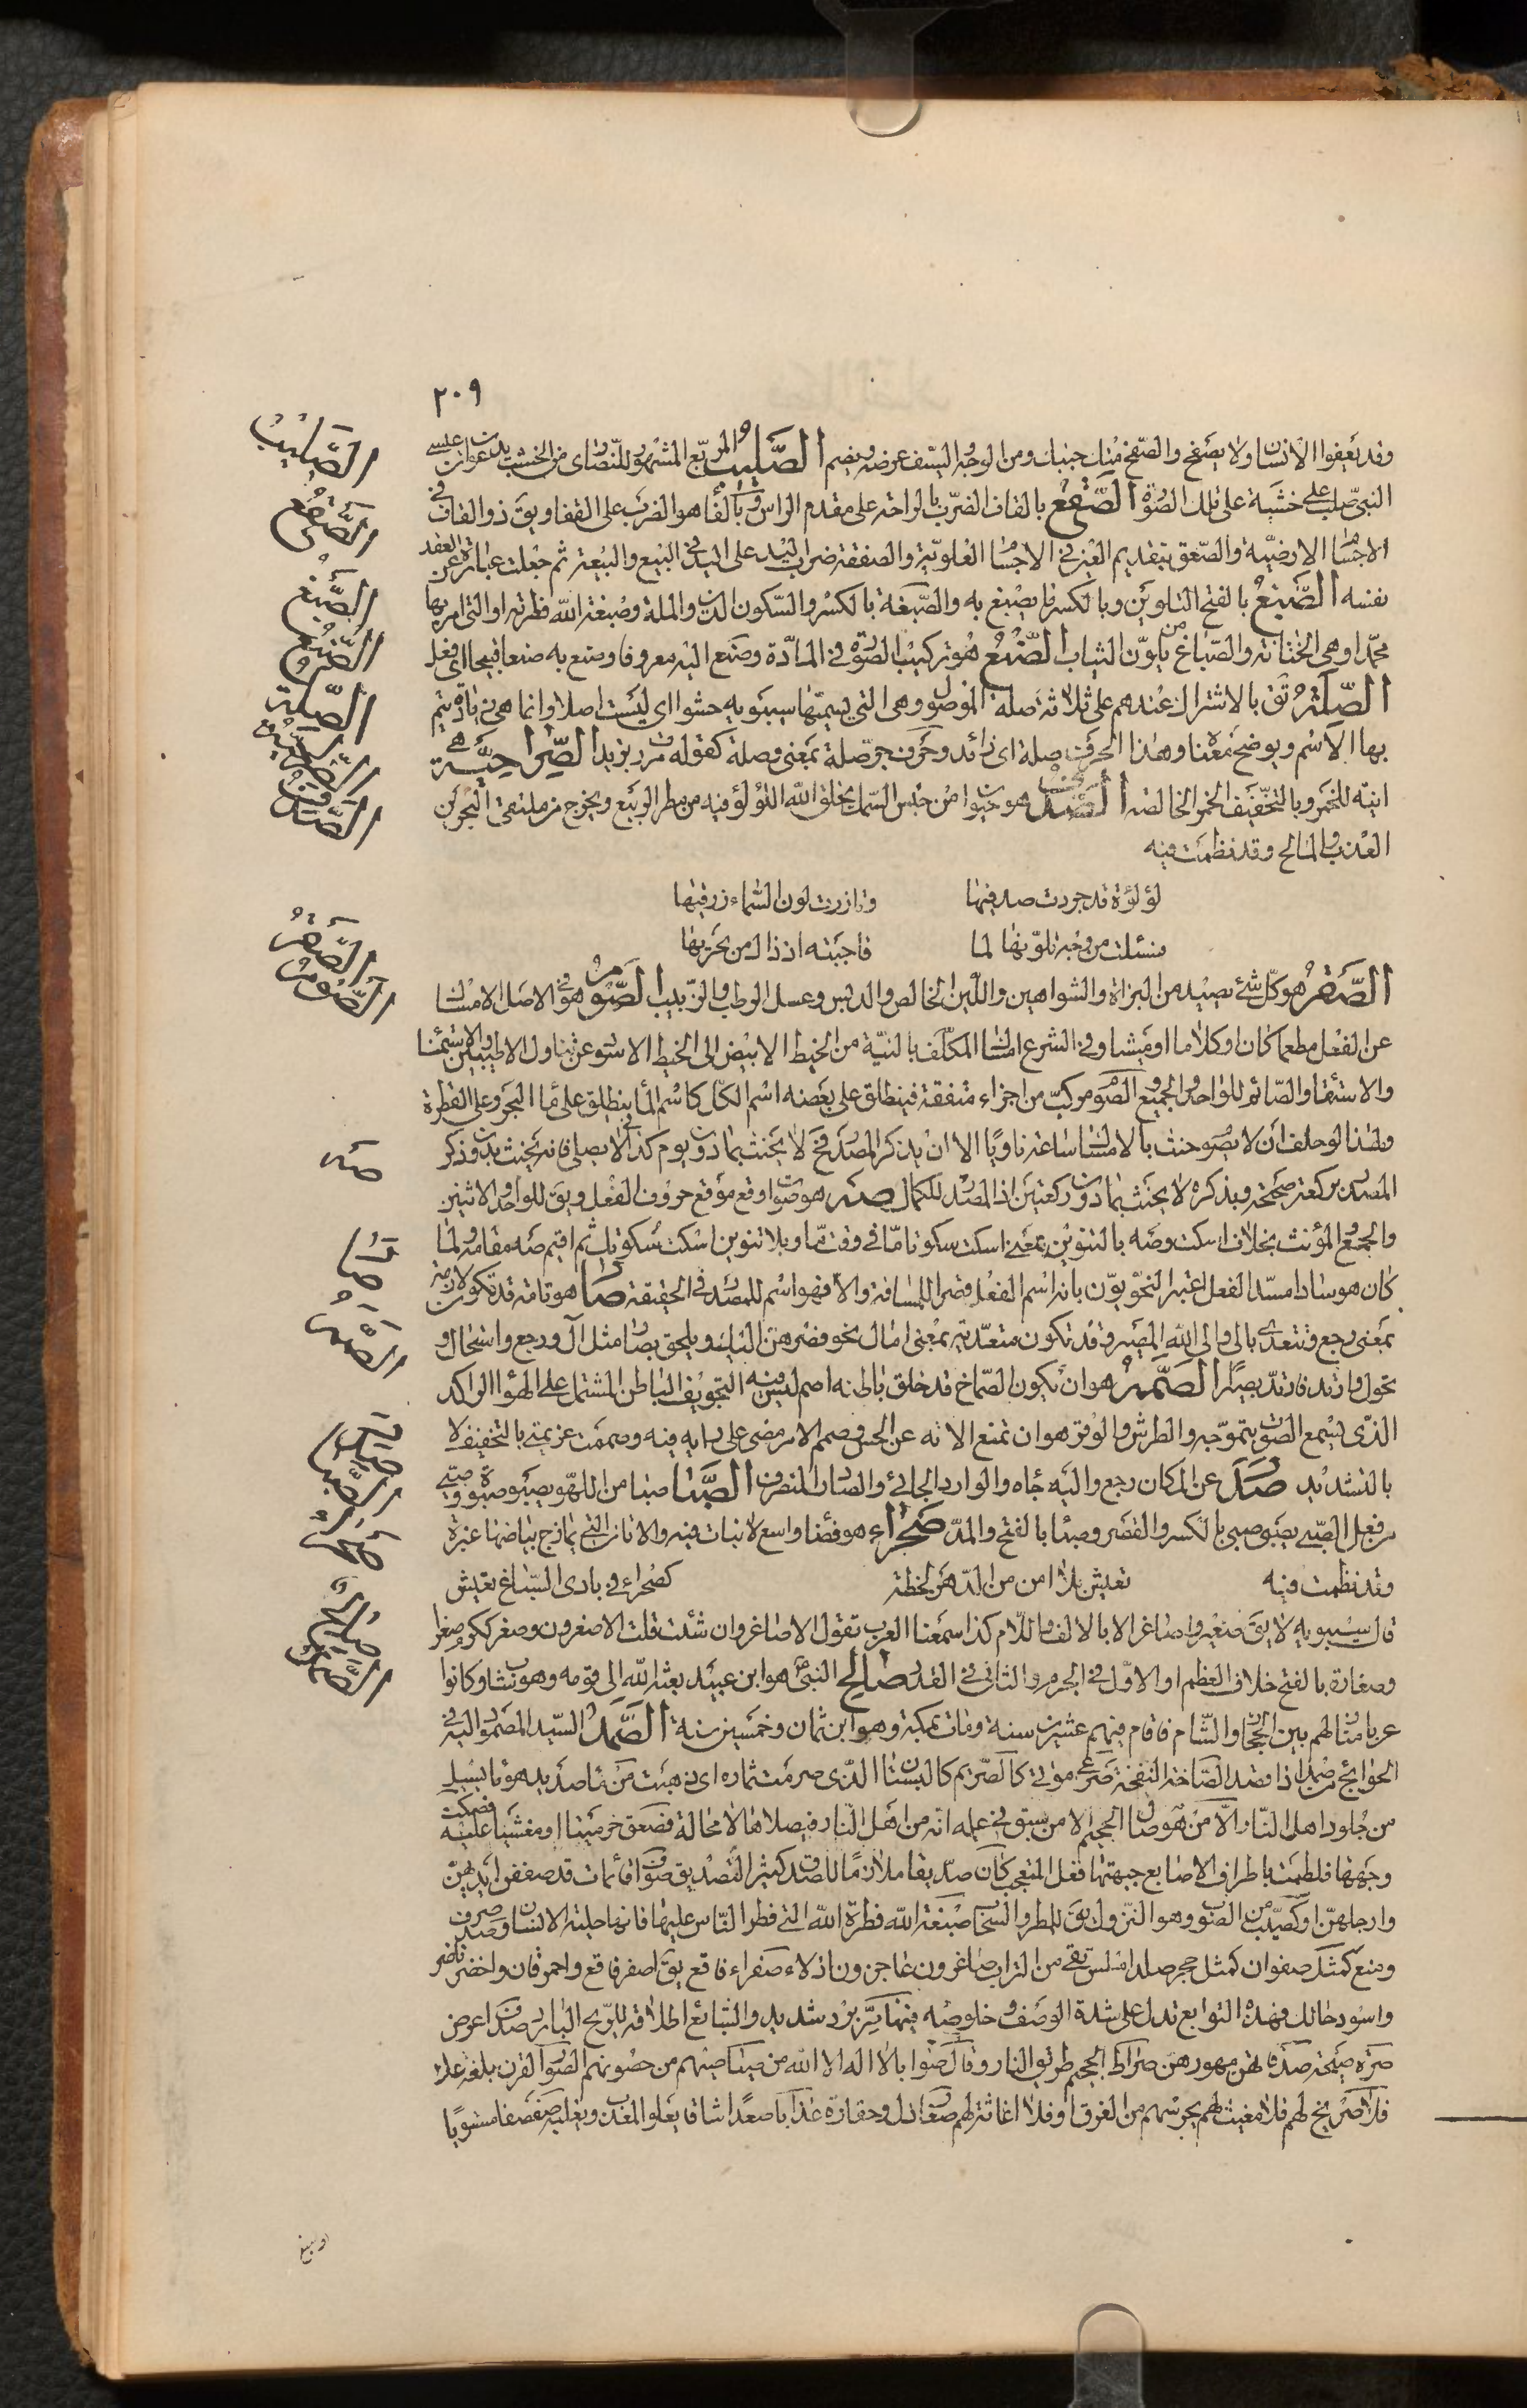 ٢٠٩
وقد يعفو الانسان ولا يصفح والصفح منك جنبك ومن الوجه والسيف عرضه ويضم الصَّلِيبُ المربّع المشهور للنصارى من الخشب يدعون ان عيسى
النبي صلب على خشبة على تلك الصورة الصَّقعُ بالقاف الضرب بالراحة على مقدم الراس وبالفا هو الضرب على القفا ويق ذو القاف في
الاجسام الارضيّة والصّعق بتقديم العين في الاجسام العلويّة والصفقة ضرب اليد على اليد في البيع والبيعة ثم جعلت عبارة عن العقد
نفسه الصَّبغُ بالفتح التلوين وبالكسر ما يصبغ به والصّبغة بالكسر والسكون الدين والملة وصبغة الله فطرته او التي امر بها
محمّدا وهي الختانة والصّباغ من يلوّن الثياب الصُّنعُ هو تركيب الصورة في المادّة وصنع اليه معروفا وصنع به صنعا قبيحا اى فعل
الصِّلةُ تق بالاشتراك عندهم على ثلاثة صلة الموصول وهي التي يسميها سيبويه حشوا اى ليست اصلا وانما هي زيادة يتم
بها الاسم ويوضح معناه وهذا الحرف صلة اى زائد وحرف جر صلة بمعنى وصلة كقوله مررت بزيد الصُّراحيَّة هي
انية للخمر وبالتخفيف الخمر الخالصة الصَّدَف هو حيوان من جنس السمك يخلق الله اللؤلؤ فيه من مطر الربيع ويخرج من ملتقى البحرين
العذب والمالح وقد نظمت فيه
لؤلؤة قد جردت صدفيها وازرت لون السّماء زرقتها
فسئلت من وجه تلوينها لما فاجبته اذ ذا لمن بحريها
الصَّقرُ هو كلّ شئ يصيد من البزاة والشواهين واللبن الخالص والدبس وعسل الرطب والزبيب الصَّومُ هو في الاصل الامساك
عن الفعل مطعما كان او كلاما او مشيا وفي الشرع امساك المكلّف بالنيّة من الخيط الابيض الى الخيط الاسود عن تناول الاطيبين والاستمنا
والاستقاء والصّائم للواحد والجميع والصوم مركب من اجزاء متفقة فينطلق على بعضه اسم الكل كاسم الماء ينطلق على ماء البحر وعلى القطرة
ولهذا لو حلف ان لا يصوم حنث بالامساك ساعة ناويًا الا ان يذكر المصدر فح لا يحنث بما دون يوم كذا لا يصلي فانه يحنث بدون ذكر
المصدر بركعة صحيحة وبذكره لا يحنث بما دون ركعتين اذ المصدر للكمال صَه هو صوت اوقع موقع حروف الفعل ويق للواحد والاثنين
والجمع والمؤنث بخلاف اسكت وصَه بالتنوين بمعنى اسكت سكوتا مّا في وقت مّا وبلا تنوين اسكت سكوتك ثم اقيم صه مقامه ولما
كان هو سادا مسدّ الفعل اعتبر النحويّون بانه اسم الفعل قصرا للمسافة والا فهو اسم للمصدر في الحقيقة صَار هو تامة قد تكون لازمة
بمعنى رجع وتتعدى بالى والى الله المصير وقد تكون متعدّية بمعنى امال نحو فصرهن اليك ويلحق بصار مثل آل ورجع واستحال و
تحول وارتد فارتد بصيرًا الصَّمَمُ هو ان يكون الصّماخ قد خلق باطنه اصم ليس فيه التجويف الباطن المشتمل على الهواء الراكد
الذّى يسمع الصّوت بتموّجه والطرش والوقر هو ان تمنع الالة عن الحس وصمم الامر مضى على رايه فيه وصممت عزيمتي بالتخفيف لا
بالتشديد صَدَر عن المكان رجع واليه جاه والوارد الجائي والصادر المنصرف الصَّبا صبا من اللهو يصبو صبوة وصبى
من فعل الصّبى يصبو صبى بالكسر والقصر وصبئا بالفتح والمدّ صَحراء هو فضاء واسع لا نبات فيه والاتان التي يمازج بياضها غبرة
وقد نظمت فيه تعيش بلا امن من الدهر لحظة كصحراء في بادى السّباع تعيش
قال سيبويه لا يق صغير واصاغر الا بالالف واللام كذا سمعنا العرب تقول الاصاغر وان شئت قلت الاصغرون وصغر ككرم صغرا
وصغارة بالفتح خلاف العظم او الاوّل في الجرم والثاني في القدر صَالِح النبيّ هو ابن عبيد بعثه الله الى قومه وهو شاب وكانوا
عربا منازلهم بين الحجاز والشّام فاقام فيهم عشرين سنة ومات بمكة وهو ابن ثمان وخمسين سنة الصَّمدُ السيّد المصمود اليه في
الحوائج من صمد اذا قصد الصّاخة النفخة صرعى موتى كالصريم كالبستان الذّى صرمت ثماره اى ذهبت من ماء صديد هو ما يسيل
من جلود اهل النّار الّا من هو صال الجحيم الا من سبق في علمه انّه من اهل النّار فيصلاها لا محالة فصعق خرّ ميتا او مغشيا عليه فصكت
وجهها فلطمت باطراف الاصابع جبهتها فعل المتعجب كان صدّيقا ملازمًا للصدق كثير التصديق صواف قائمات قد صففن ايديهنّ
وارجلهنّ او كصيّب من الصوب وهو النزول يق للمطر والسحاب صبغة الله فطرة الله التي فطر الناس عليها فانها حلية الانسان وصدف صرف
ومنع كمثل صفوان كمثل حجر صلدا املس نقى من التراب صاغرون عاجزون اذلاء صفراء فاقع يق اصفر فاقع واحمر قان واخضر ناضر
واسود حالك فهذه التوابع تدل على شدة الوصف وخلوصه فيها صرّ برد شديد والشائع اطلاقه للريح الباردة صدف اعرض
صرّة صيحة صدقاتهن مهورهن صراط الجحيم طريق النار وقال صوابا لا اله الا الله من صياصيهم من حصونهم الصور القرن بلغة عك
فلا صريخ لهم فلا مغيث لهم يحرسهم من الغرق او فلا اغاثة لهم صغار ذل وحقارة عذابا صعدا شاقا يعلو المعذب ويغلبه صفصفا مستويًا
الصَّلِيبُ
الصَّقعُ
الصَّبغُ
الصُّنعُ
الصِّلةُ
الصُّراحيَّة
الصَّدَف
الصَّقرُ
الصَّومُ
صَه
صَار
الصَّمَمُ
صَدَر
الصَّبا
صَحراء
صَالِح
الصَّمدُ